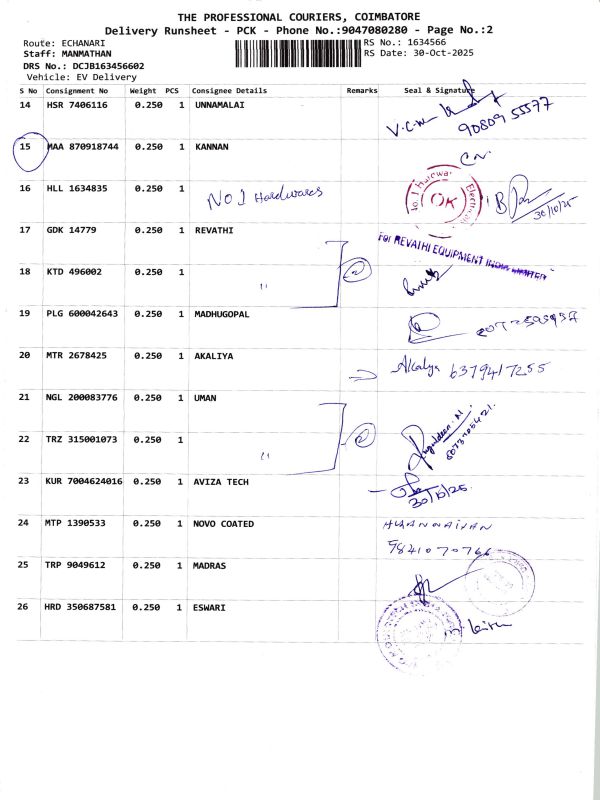 THE PROFESSIONAL COURIERS, COIMBATORE
Delivery Runsheet - PCK - Phone No.:9047080280 - Page No.:2
Route: ECHANARI RS No.: 1634566
Staff: MANMATHAN RS Date: 30-Oct-2025
DRS No.: DCJB163456602
Vehicle: EV Delivery
S No Consignment No Weight PCS Consignee Details Remarks Seal & Signature
14 HSR 7406116 0.250 1 UNNAMALAI
90809 55577
15 MAA 870918744 0.250 1 KANNAN
16 HLL 1634835 0.250 1 NO 1 Hardwares OK 30/10/25
17 GDK 14779 0.250 1 REVATHI
For REVATHI EQUIPMENT INDIA LIMITED
18 KTD 496002 0.250 1 " 2
19 PLG 600042643 0.250 1 MADHUGOPAL
20 MTR 2678425 0.250 1 AKALIYA Akalya 6379417255
21 NGL 200083776 0.250 1 UMAN
22 TRZ 315001073 0.250 1 " 2
23 KUR 7004624016 0.250 1 AVIZA TECH
30/10/25
24 MTP 1390533 0.250 1 NOVO COATED
9841070766
25 TRP 9049612 0.250 1 MADRAS
26 HRD 350687581 0.250 1 ESWARI